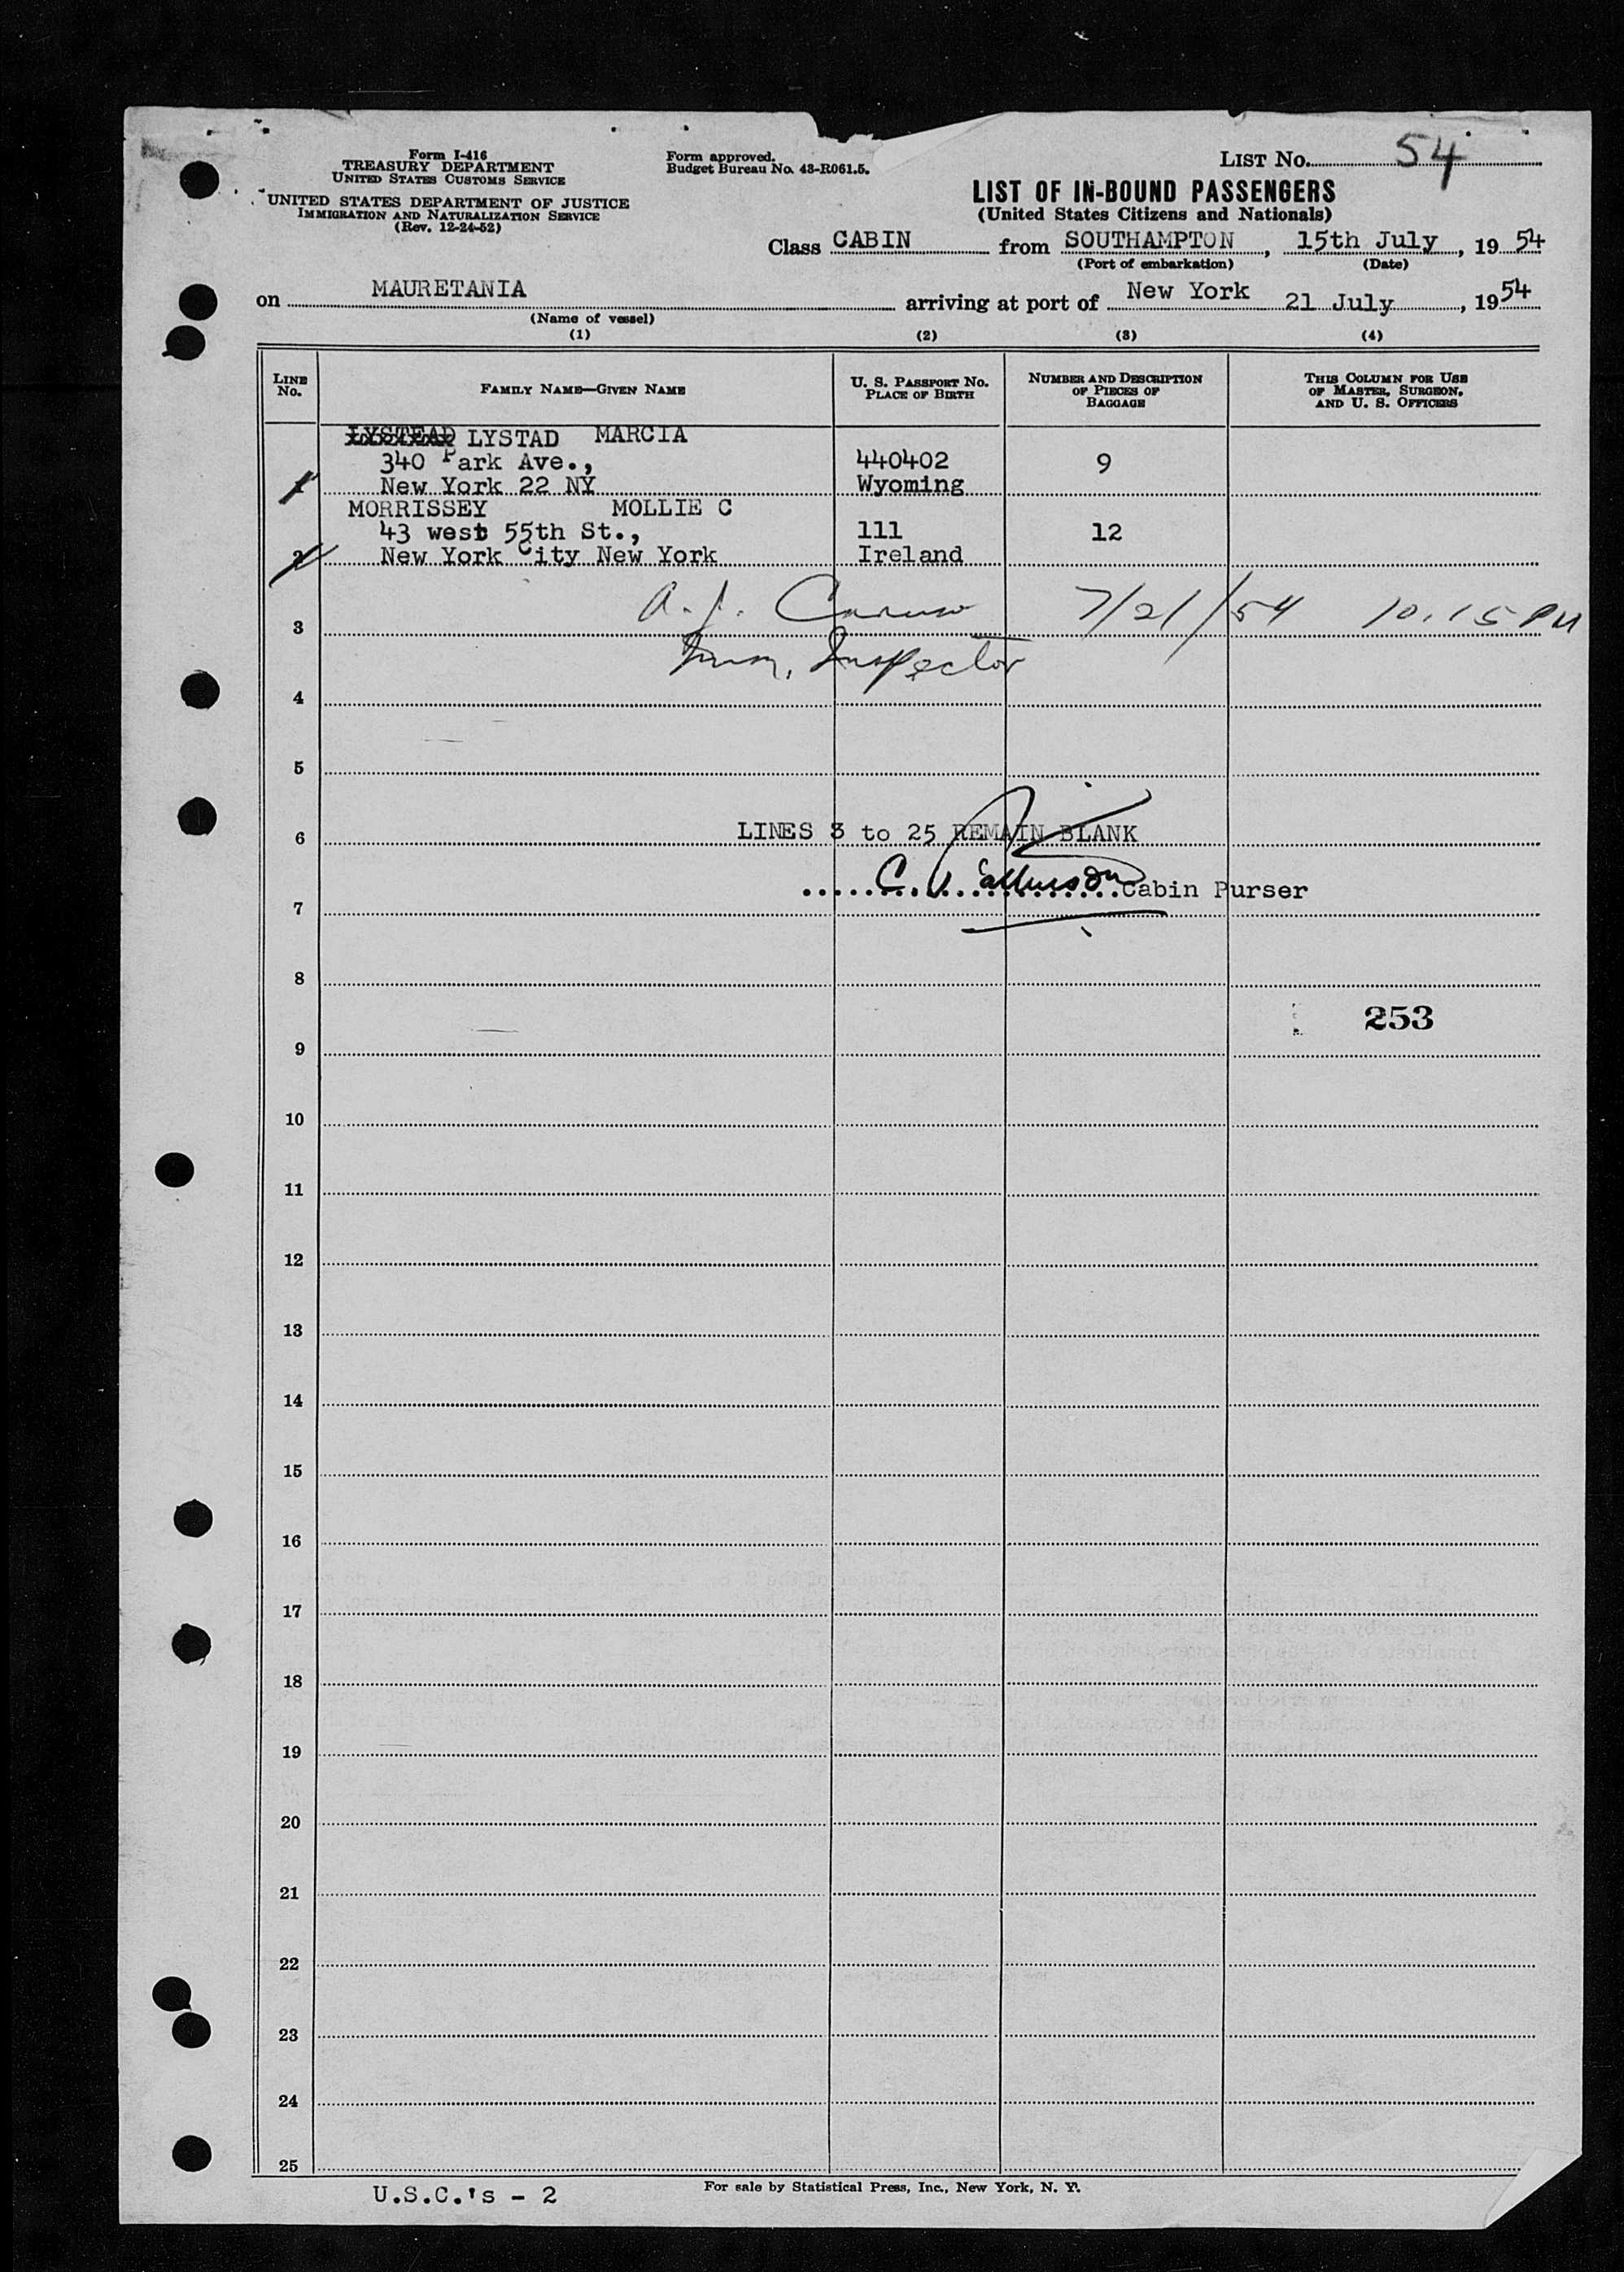 Form I-416
TREASURY DEPARTMENT
UNITED STATES CUSTOMS SERVICE
UNITED STATES DEPARTMENT OF JUSTICE
IMMIGRATION AND NATURALIZATION SERVICE
(Rev. 12-24-52)
Form approved.
Budget Bureau No. 43-R061.5.
LIST No. 54
LIST OF IN-BOUND PASSENGERS
(United States Citizens and Nationals)
Class CABIN from SOUTHAMPTON, 15th July, 19 54
(Port of embarkation) (Date)
on MAURETANIA arriving at port of New York 21 July, 19 54
(Name of vessel)
(1) (2) (3) (4)
LINE No. FAMILY NAME—GIVEN NAME U. S. PASSPORT No. PLACE OF BIRTH NUMBER AND DESCRIPTION OF PIECES OF BAGGAGE THIS COLUMN FOR USE OF MASTER, SURGEON, AND U. S. OFFICERS
LYSTEAD LYSTAD MARCIA
340 Park Ave., 440402 9
1 New York 22 NY Wyoming
MORRISSEY MOLLIE C
43 west 55th St., 111 12
2 New York City New York Ireland
A. J. Caruso 7/21/54 10.15 PM
3
Imm. Inspector
4
5
6 LINES 3 to 25 REMAIN BLANK
Cabin Purser
7
8
253
9
10
11
12
13
14
15
16
17
18
19
20
21
22
23
24
25
U.S.C.'s - 2
For sale by Statistical Press, Inc., New York, N. Y.